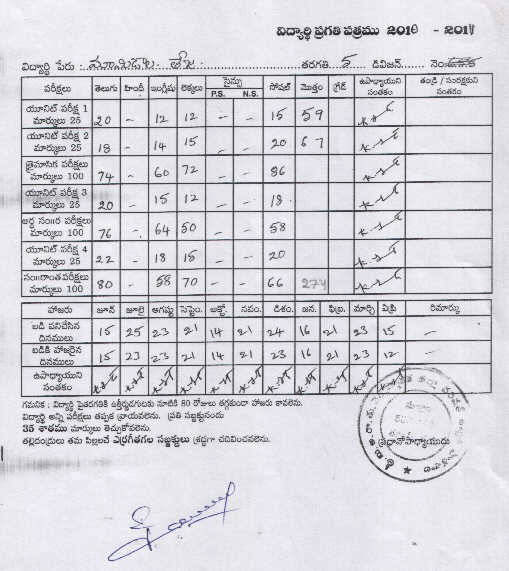 విద్యార్థి ప్రగతి పత్రము 2010 - 2011
విద్యార్థి పేరు : తరగతి 5 డివిజన్ నెం:
పరీక్షలు తెలుగు హిందీ ఇంగ్లీషు లెక్కలు సైన్సు P.S. N.S. సోషల్ మొత్తం గ్రేడ్ ఉపాధ్యాయుని సంతకం తండ్రి / సంరక్షకుని సంతకం
యూనిట్ పరీక్ష 1 మార్కులు 25 20 - 12 12 - - 15 59
యూనిట్ పరీక్ష 2 మార్కులు 25 18 - 14 15 - - 20 67
త్రైమాసిక పరీక్షలు మార్కులు 100 74 - 60 72 - - 86
యూనిట్ పరీక్ష 3 మార్కులు 25 20 - 15 12 - - 18
అర్ధ సం॥ర పరీక్షలు మార్కులు 100 76 - 64 50 - - 58
యూనిట్ పరీక్ష 4 మార్కులు 25 22 - 18 15 - - 20
సంవత్సరాంత పరీక్షలు మార్కులు 100 80 - 58 70 - - 66 274
హాజరు జూన్ జూలై ఆగష్టు సెప్టెం. అక్టో. నవం. డిశం. జన. ఫిబ్ర. మార్చి ఏప్రి రిమార్కు
బడి పనిచేసిన దినములు 15 25 23 21 14 21 24 16 21 23 15 -
బడికి హాజరైన దినములు 15 23 23 21 14 21 23 16 21 23 12 -
ఉపాధ్యాయుని సంతకం
గమనిక : విద్యార్థి పైతరగతికి ఉత్తీర్ణుడగుటకు నూటికి 80 రోజులు తగ్గకుండా హాజరు కావలెను.
విద్యార్థి అన్ని పరీక్షలు తప్పక వ్రాయవలెను. ప్రతి సబ్జెక్టునందు
35 శాతము మార్కులు తెచ్చుకోవలెను.
తల్లిదండ్రులు తమ పిల్లలచే ఎర్రగీతగల సబ్జక్టులు శ్రద్ధగా చదివించవలెను.
ప్రధానోపాధ్యాయుడు